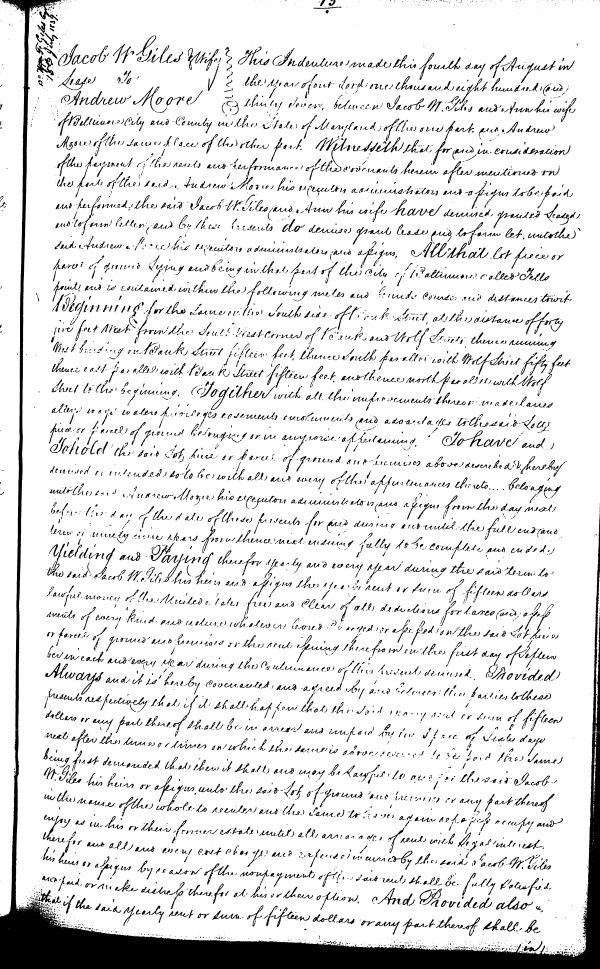 75
Jacob W Giles & Wife
Lease To
Andrew Moore
This Indenture made this fourth day of August in
the year of our Lord one thousand eight hundred and
thirty seven, between Jacob W. Giles and Ann his wife
of Baltimore City and County in the State of Maryland of the one part, and Andrew
Moore of the same place of the other part. Witnesseth that for and in consideration
of the payment of the rents and performance of the covenants herein after mentioned on
the part of the said Andrew Moore his executors administrators and assigns to be paid
and performed, the said Jacob W. Giles and Ann his wife have demised granted leased
and to farm letten, and by these presents do demise grant lease and to farm let, unto the
said Andrew Moore his executors administrators and assigns, All that lot piece or
parcel of ground lying and being in that part of the City of Baltimore called Fells
point, and is contained within the following metes and bounds courses and distances to wit
Beginning for the same on the South side of Bank Street, at the distance of forty
five feet West from the South West corner of Bank and Wolf Streets, thence running
West binding on Bank Street fifteen feet, thence South parallel with Wolf Street fifty feet
thence east parallel with Bank Street fifteen feet, and thence north parallel with Wolf
Street to the beginning. Together with all the improvements thereon made lanes
alleys ways waters privileges easements emoluments and advantages to the said Lot
piece or parcel of ground belonging or in anywise appertaining. To have and
To hold the said Lot, piece or parcel of ground and premises above described & hereby
demised or intended so to be with all and every of the appurtenances thereto belonging
unto the said Andrew Moore his executors administrators and assigns from the day next
before the day of the date of these presents for and during and until the full end and
term of ninety nine years from thence next ensuing fully to be complete and ended.
Yielding and Paying therefor yearly and every year during the said term to
the said Jacob W. Giles his heirs and assigns the yearly rent or sum of fifteen dollars
lawful money of the United States free and clear of all deductions for taxes and assess
ments of every kind and nature whatever levied charged or assessed on the said Lot piece
or parcel of ground and premises or the rent issuing therefrom in the first day of Septem
ber in each and every year during the continuance of this present demised. Provided
Always and it is hereby covenanted and agreed by and between the parties to these
presents respectively that if it shall happen that the said yearly rent or sum of fifteen
dollars or any part thereof shall be in arrear and unpaid by the space of Sixty days
next after the times or times on which the same is above reserved to be paid the same
being first demanded that then it shall and may be Lawful to and for the said Jacob
W. Giles his heirs or assigns unto the said Lot of ground and premises or any part thereof
in the name of the whole to reenter and the same to have again repossess occupy and
enjoy as in his or their former estate until all arrearages of rent with Legal interest
therefor and all and every cost charge and expense incurred by the said Jacob W. Giles
his heirs or assigns by reason of the nonpayment of the said rent shall be fully satisfied
and paid or make distress therefor at his or their option. And Provided also
that if the said yearly rent or sum of fifteen dollars or any part thereof shall be
in